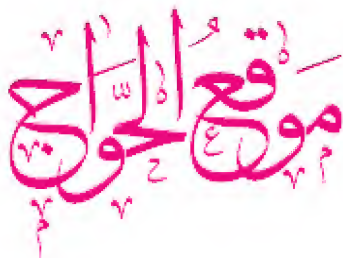 موقع الحوّاج